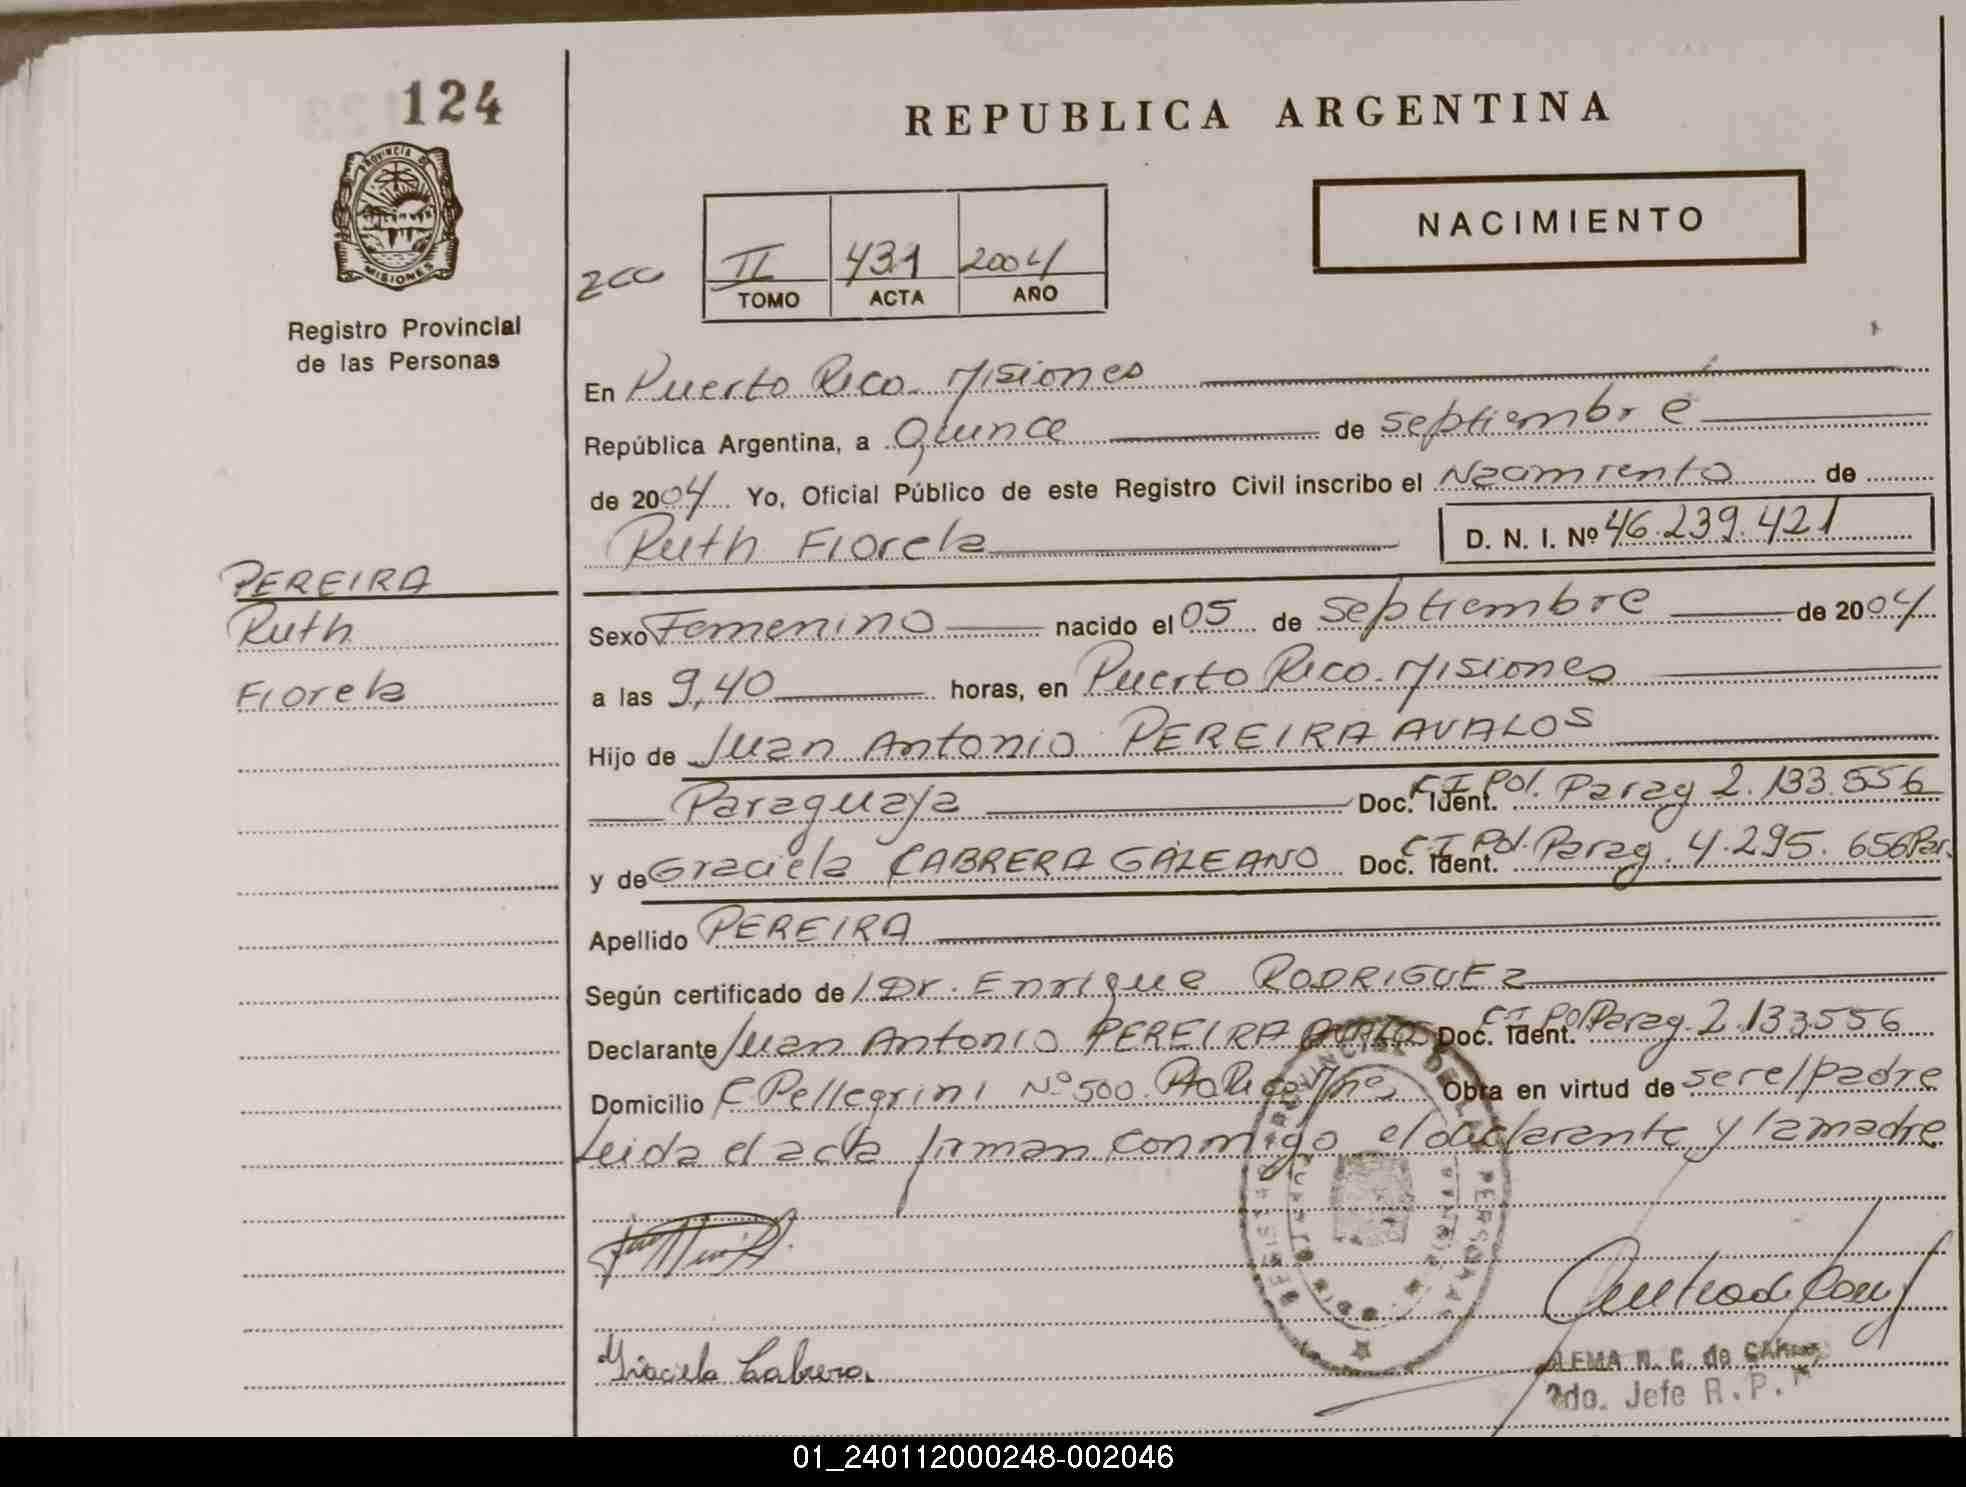 124
REPUBLICA ARGENTINA
PROVINCIA DE
MISIONES
Registro Provincial
de las Personas
NACIMIENTO
200
II 431 2004
TOMO ACTA AÑO
En Puerto Rico. Misiones
República Argentina, a Quince de septiembre
de 2004 Yo, Oficial Público de este Registro Civil inscribo el Nacimiento de
Ruth Fiorela D. N. I. Nº 46.239.421
PEREIRA
Ruth
Fiorela
Sexo Femenino nacido el 05 de septiembre de 2004
a las 9,40 horas, en Puerto Rico. Misiones
Hijo de Juan Antonio PEREIRA AVALOS
Paraguaya Doc. Ident. C.I Pol. Parag 2.133.556
y de Graciela CABRERA GALEANO Doc. Ident. C.I Pol. Parag. 4.295.656 Par.
Apellido PEREIRA
Según certificado de Dr. Enrique RODRIGUEZ
Declarante Juan Antonio PEREIRA AVALOS Doc. Ident. C.I Pol Parag. 2.133.556
Domicilio C Pellegrini Nº 500. Pto Rico Mnes Obra en virtud de ser el padre
Leida el acta firman conmigo el declarante y la madre
Graciela Cabrera.
2do. Jefe R. P.
01_240112000248-002046